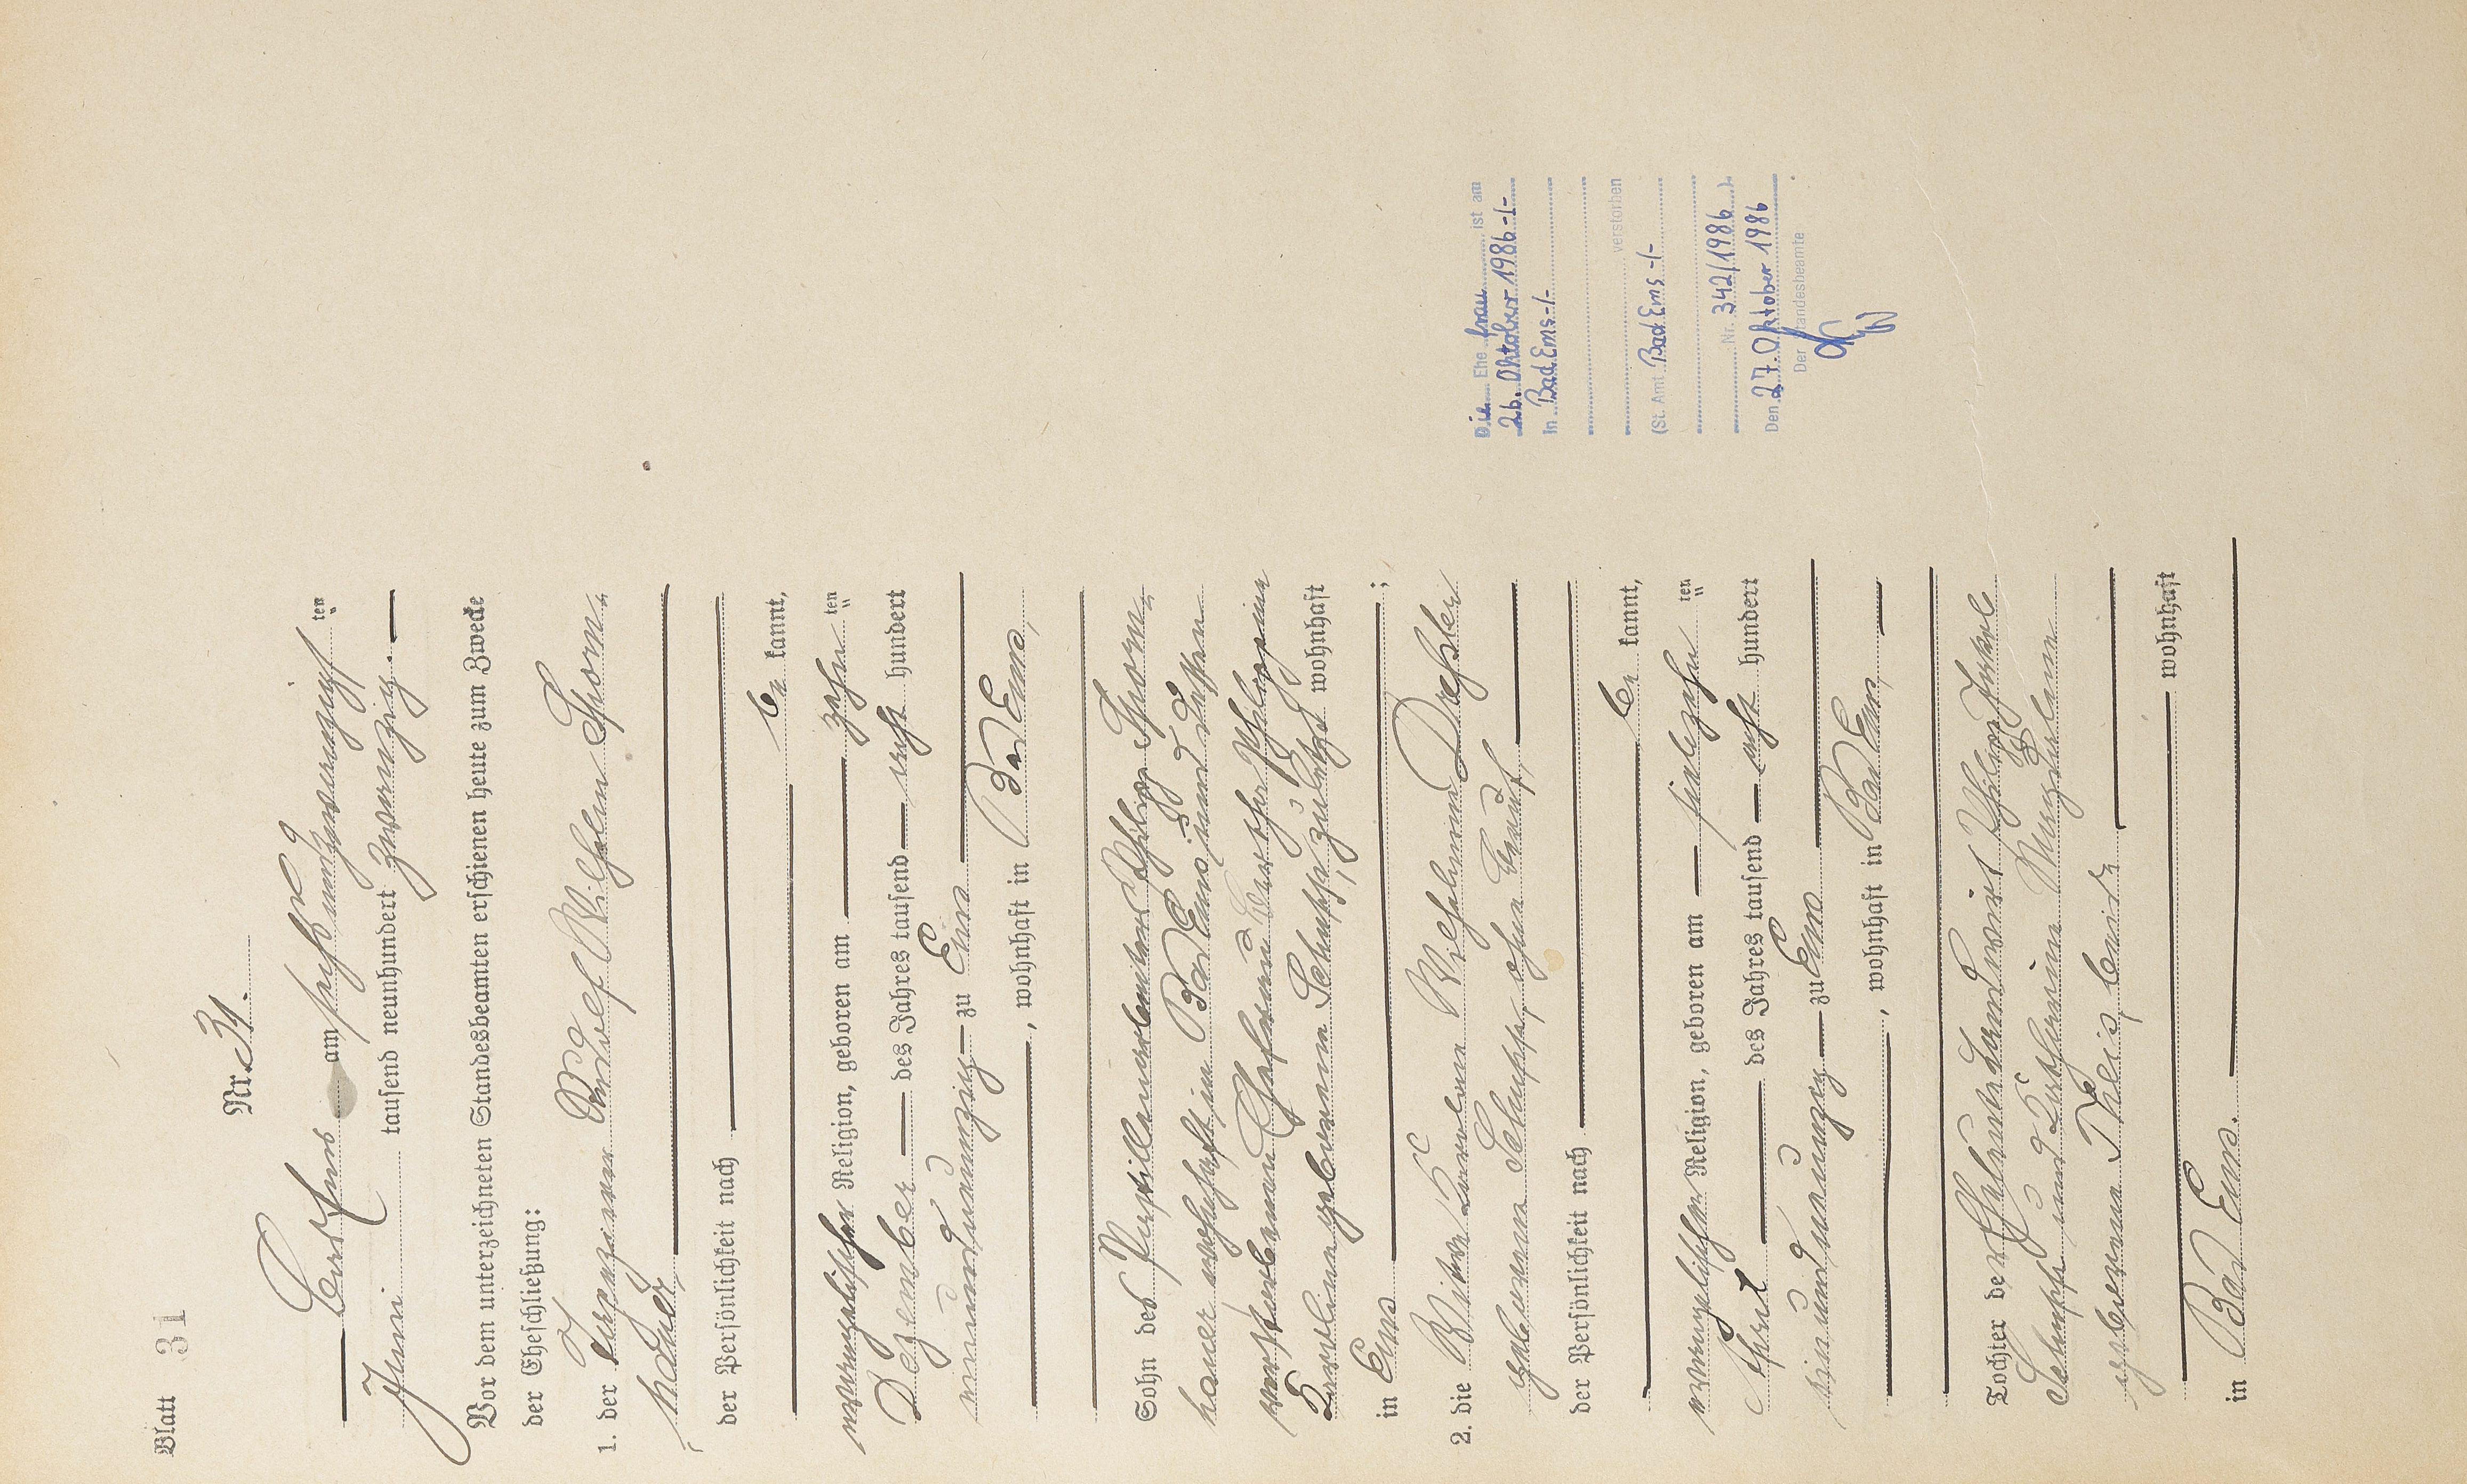 Blatt 31
Nr. 31.
Bad Ems am sechsundzwanzigsten
Juni tausend neunhundert zwanzig.
Vor dem unterzeichneten Standesbeamten erschienen heute zum Zwecke
der Eheschließung:
1. der Wilhelm Thom-
häuser,
der Persönlichkeit nach
be kannt,
evangelischer Religion, geboren am zehn ten
Dezember des Jahres tausend acht hundert
neunundneunzig zu Ems
, wohnhaft in Bad Ems,
Sohn des Philipp Thom-
häuser wohnhaft in Bad Ems und dessen
verstorbenen Ehefrau
Karoline geborenen Schupp, zuletzt wohnhaft
in Ems ;
2. die Witwe Karoline Wilhelmine Dreßler
geborene Schupp, ohne Beruf,
der Persönlichkeit nach
be kannt,
evangelischer Religion, geboren am siebzehn ten
April des Jahres tausend acht hundert
einundneunzig zu Ems
, wohnhaft in Bad Ems,
Tochter der Eheleute Landwirt Philipp Jakob
Schupp und Katharina
geborene Theis, beide
wohnhaft
in Bad Ems.
Die Ehe frau ist am
26. Oktober 1986 -/-
In Bad Ems -/-
verstorben
(St. Amt Bad Ems -/-
Nr. 342/1986 ).
Den 27. Oktober 1986
Der Standesbeamte